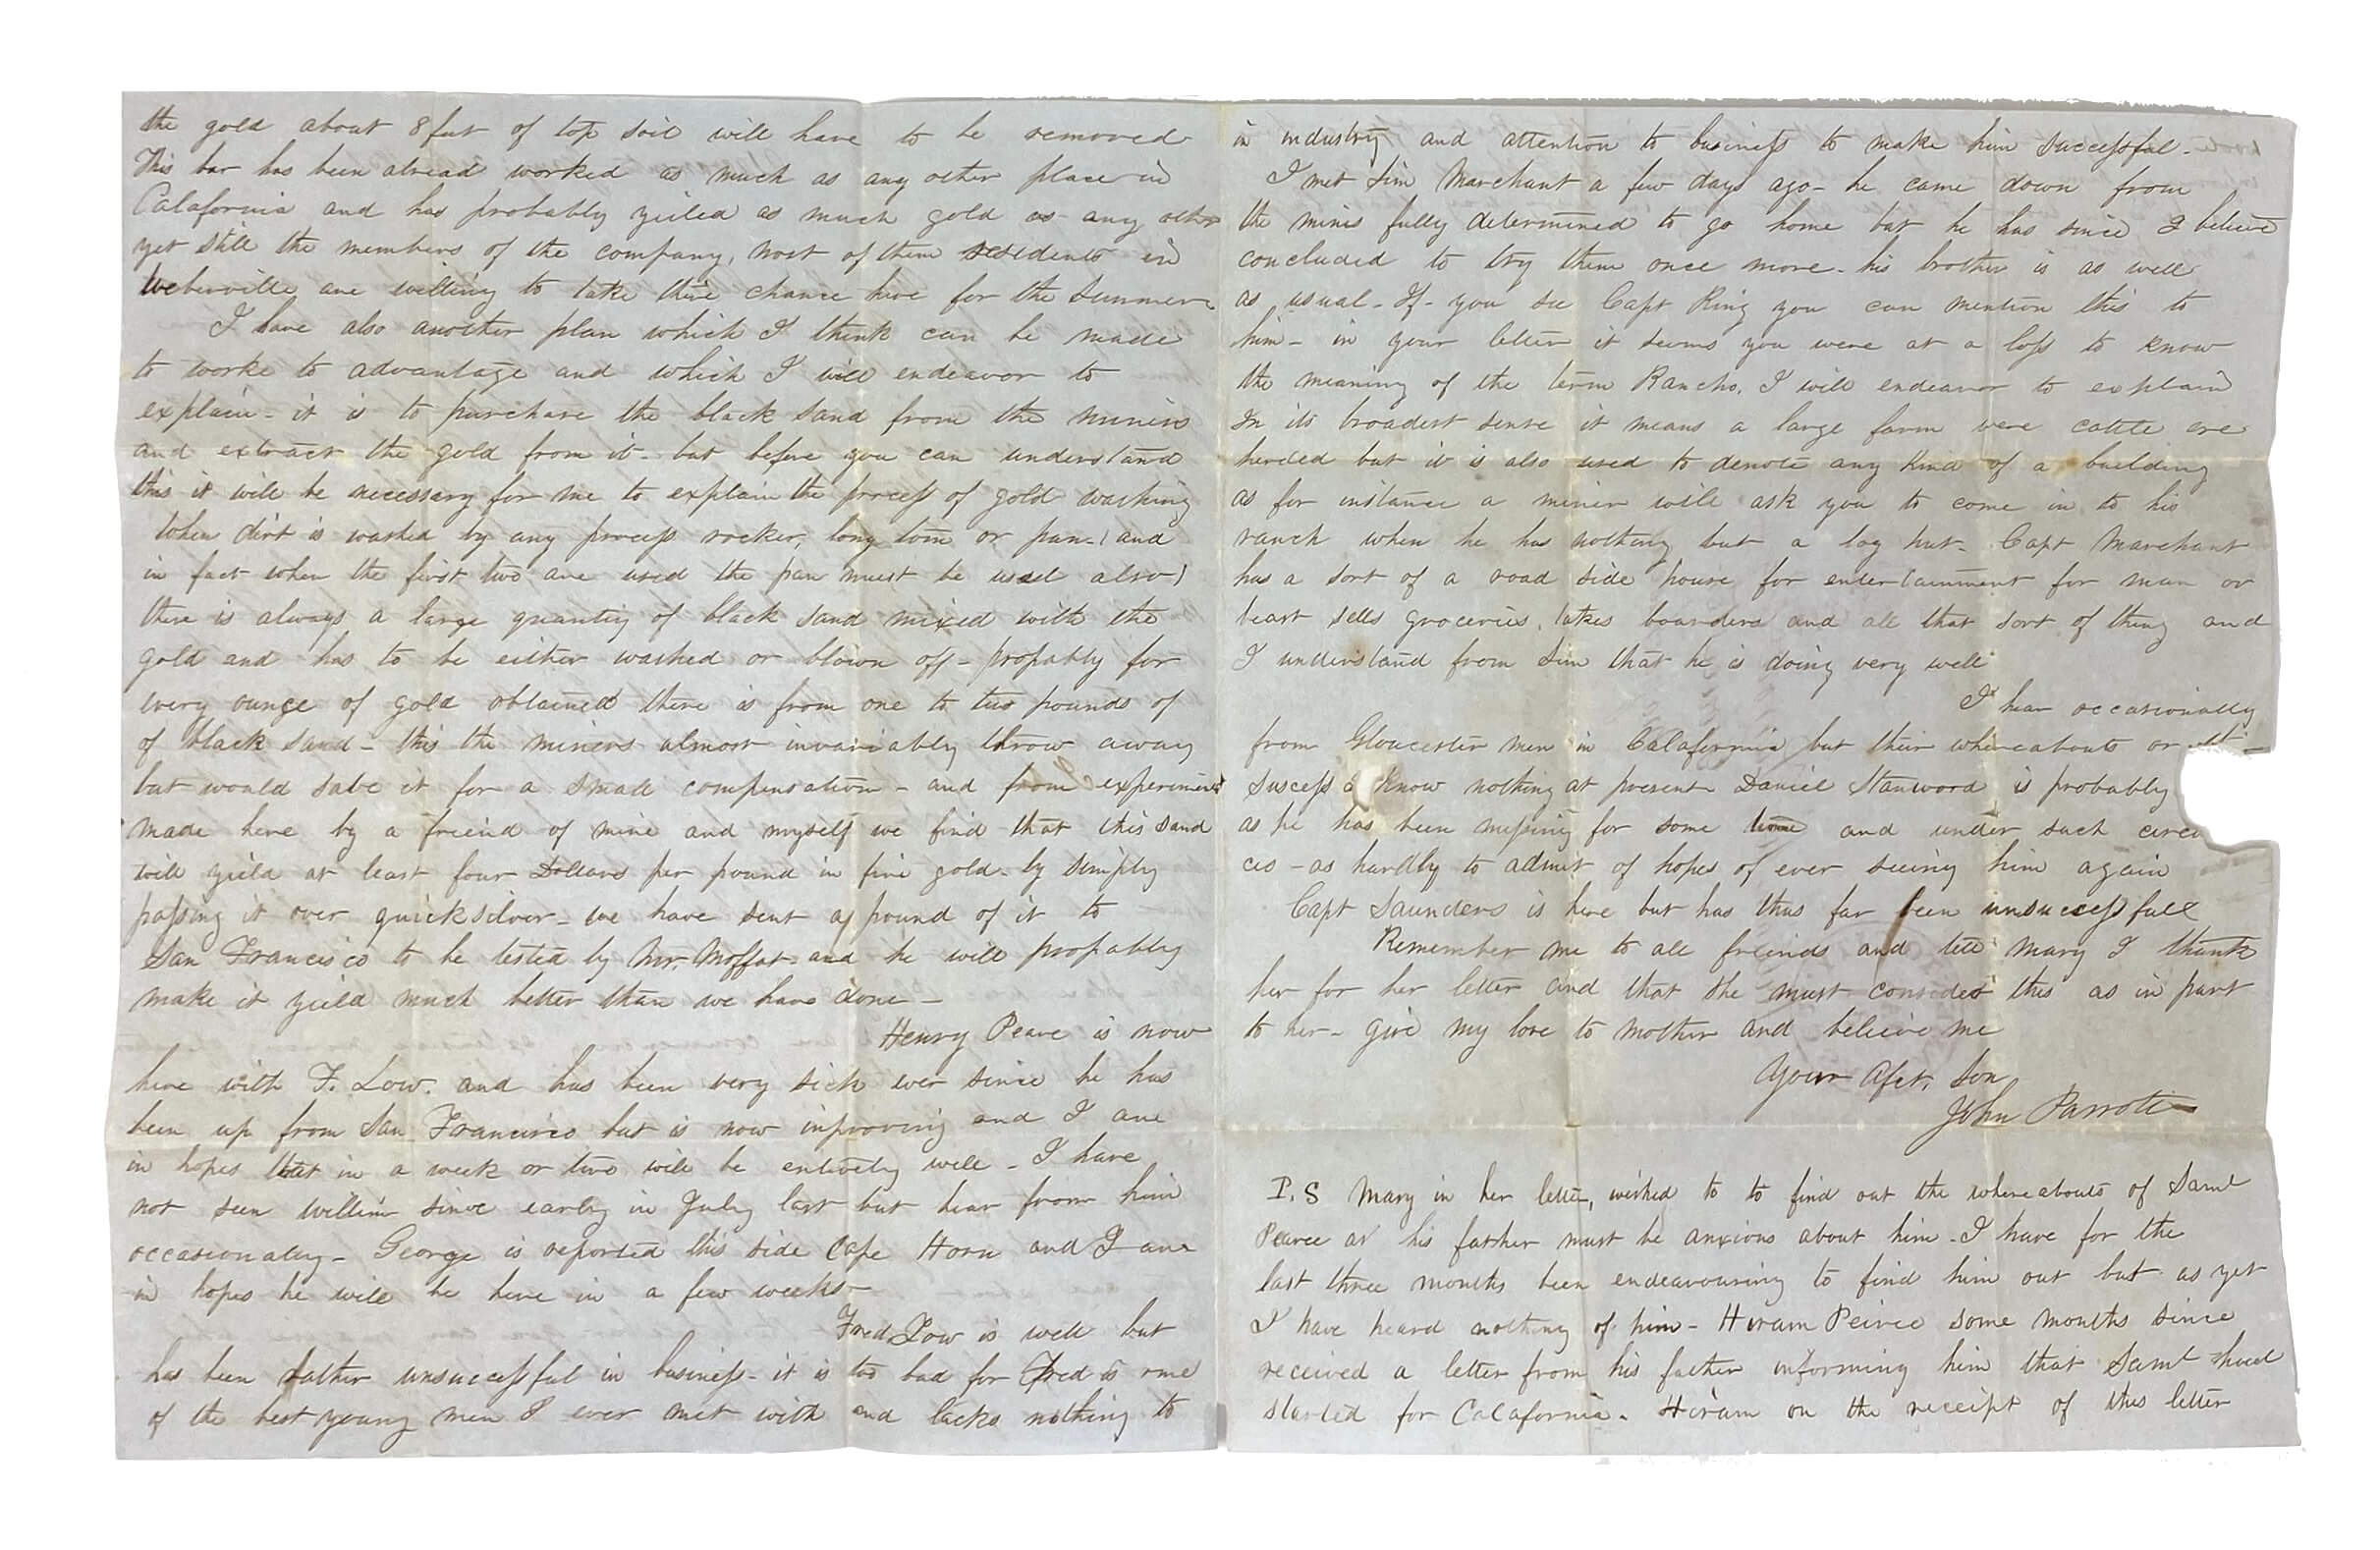 the gold about 8 feet of top soil will have to be removed
This bar has been alread worked as much as any other place in
Calafornia and has probably yieled as much gold as any other
yet still the members of the company, most of them residents in
Weberville are willing to take thire chance hire for the Summer
I have also another plan which I think can be made
to worke to advantage and which I will endeavor to
explain - it is to purchase the black sand from the miners
and extract the gold from it - but before you can understand
this it will be necessary for me to explain the process of gold washing
When dirt is washed by any process rocker, long tom or pan - (and
in fact when the first two are used the pan must be used also)
there is always a large quantiy of black sand mixed with the
gold and has to be either washed or blown off - propably for
every ounge of gold obtained there is from one to two pounds of
of black sand - this the miners almost invariably throw away
but would save it for a small compensation - and from experiments
made here by a friend of mine and myself we find that this sand
will yield at least four Dollars per pound in fine gold - by simply
passing it over quicksilver - we have sent a pound of it to
San Francisco to be tested by Mr. Moffat and he will propably
make it yield much better than we have done -
Henry Pearce is now
here with F. Low. and has been very sick ever since he has
been up from San Francisco but is now inproving and I am
in hopes that in a week or two will be entirely well - I have
not seen William since early in July last but hear from him
occasionaly - George is reported this side Cape Horn and I am
in hopes he will be here in a few weeks -
Fred Low is well but
has been rather unsuccessful in business - it is too bad for Fred is one
of the best young men I ever met with and lacks nothing to
in industry and attention to business to make him successful -
I met Sim Marchant a few days ago - he came down from
the mines fully determined to go home but he has since I believe
concluded to try them once more - his brother is as well
as usual - If - you see Capt Ring you can mention this to
him - in your letter it seems you were at a loss to know
the meaning of the term Rancho. I will endeavor to explain
In its broadest sense it means a large farm were cattle are
herded but it is also used to denote any kind of a building
as for instance a miner will ask you to come in to his
ranch when he has nothing but a log hut - Capt Marchant
has a sort of a road side house for entertainment for man or
beast sells groceries, takes boarders and all that sort of thing and
I understand from Sim that he is doing very well
I hear occasionally
from Gloucester men in Calafornia but their whereabouts or
success I know nothing at present Daniel Stanword is probably
as he has been missing for some time and under such circu
ces - as hardly to admit of hopes of ever seeing him again
Capt Saunders is here but has thus far been unsuccessfull
Remember me to all freinds and tell Mary I thank
her for her letter and that she must consider this as in part
to her - give my love to Mother and believe me
Your Afct. Son
John Parrott
P.S Mary in her letter, wished to to find out the whereabouts of Saml
Pearce as his father must be anxious about him - I have for the
last three months been endeavouring to find him out but as yet
I have heard nothing of him - Hiram Peirce some months since
received a letter from his father informing him that Saml had
started for Calafornia - Hiram on the receipt of this letter